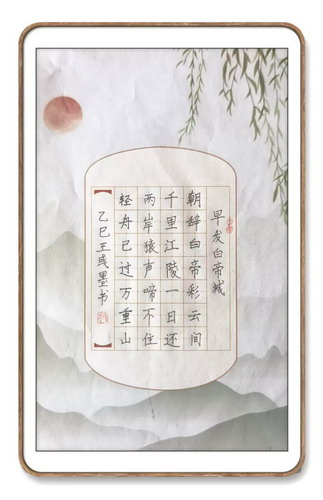 早发白帝城
朝辞白帝彩云间
千里江陵一日还
两岸猿声啼不住
轻舟已过万重山
乙巳王彧墨书